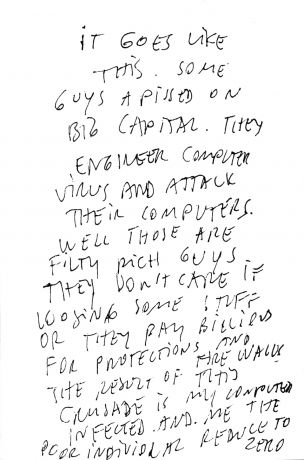 IT GOES LIKE
THIS. SOME
GUYS A PISSED ON
BIG CAPITAL. THEY
ENGINEER COMPUTER
VIRUS AND ATTACK
THEIR COMPUTERS.
WELL THOSE ARE
FILTY RICH GUYS
THEY DON'T CARE IF
LOOSING SOME STUFF
OR THEY PAY BILLIOUS
FOR PROTECTIONS AND
FIRE WALLS
THE RESULT OF THIS
CRUSADE IS MY COMPUTED
INFECTED AND ME THE
POOR INDIVIDUAL REDUCE TO
ZERO